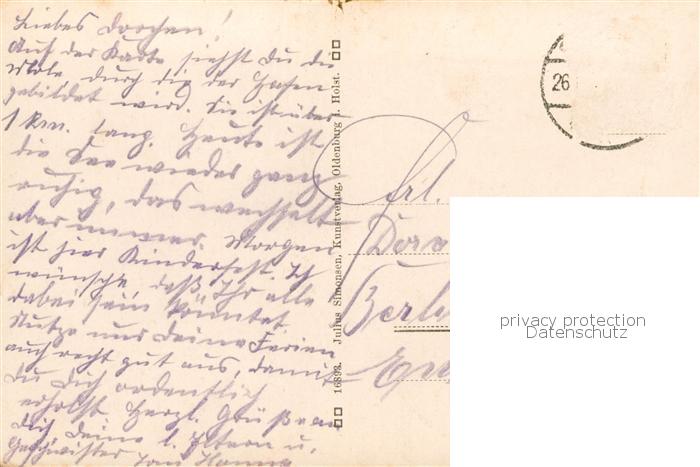 Liebes Dorchen!
Auf der Karte siehst Du die
Mole, durch die der Hafen
gebildet wird. Sie ist über
1 km. lang. Heute ist
die See wieder ganz
ruhig, das wechselt
aber immer. Morgen
ist hier Kinderfest. Ich
wünschte, daß Ihr alle
dabei sein könntet.
Nutze nur Deine Ferien
auch recht gut aus, damit
Du Dich ordentlich
erholst. Herzl. Grüße an
Dich Deine l. Eltern u.
Geschwister von Hanna
16893. Julius Simonsen, Kunstverlag, Oldenburg i. Holst.
26
Frl.
Dora
Berli
privacy protection
Datenschutz